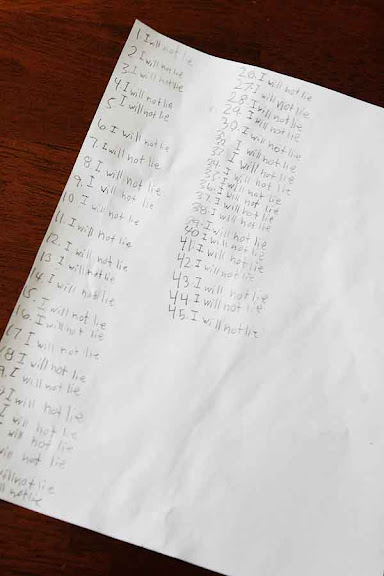 1 I will not lie
2 I will not lie
3. I will not lie
4. I will not lie
5 I will not lie
6. I will not lie
7. I will not lie
8. I will not lie
9. I will not lie
10. I will not lie
11. I will not lie
12. I will not lie
13 I will not lie
14. I will not lie
15. I will not lie
16. I will not lie
17. I will not lie
18 I will not lie
9. I will not lie
I will not lie
I will not lie
I will not lie
will not lie
will not lie
not lie
26. I will not lie
27. I will not lie
28 I will not lie
29. I will not lie
30. I will not lie
31. I will not lie
I will not lie
I will not lie
34. I will not lie
35. I will not lie
36. I will not lie
37. I will not lie
38. I will not lie
39. I will not lie
40 I will not lie
41. I will not lie
42 I will not lie
43. I will not lie
44 I will not lie
45. I will not lie